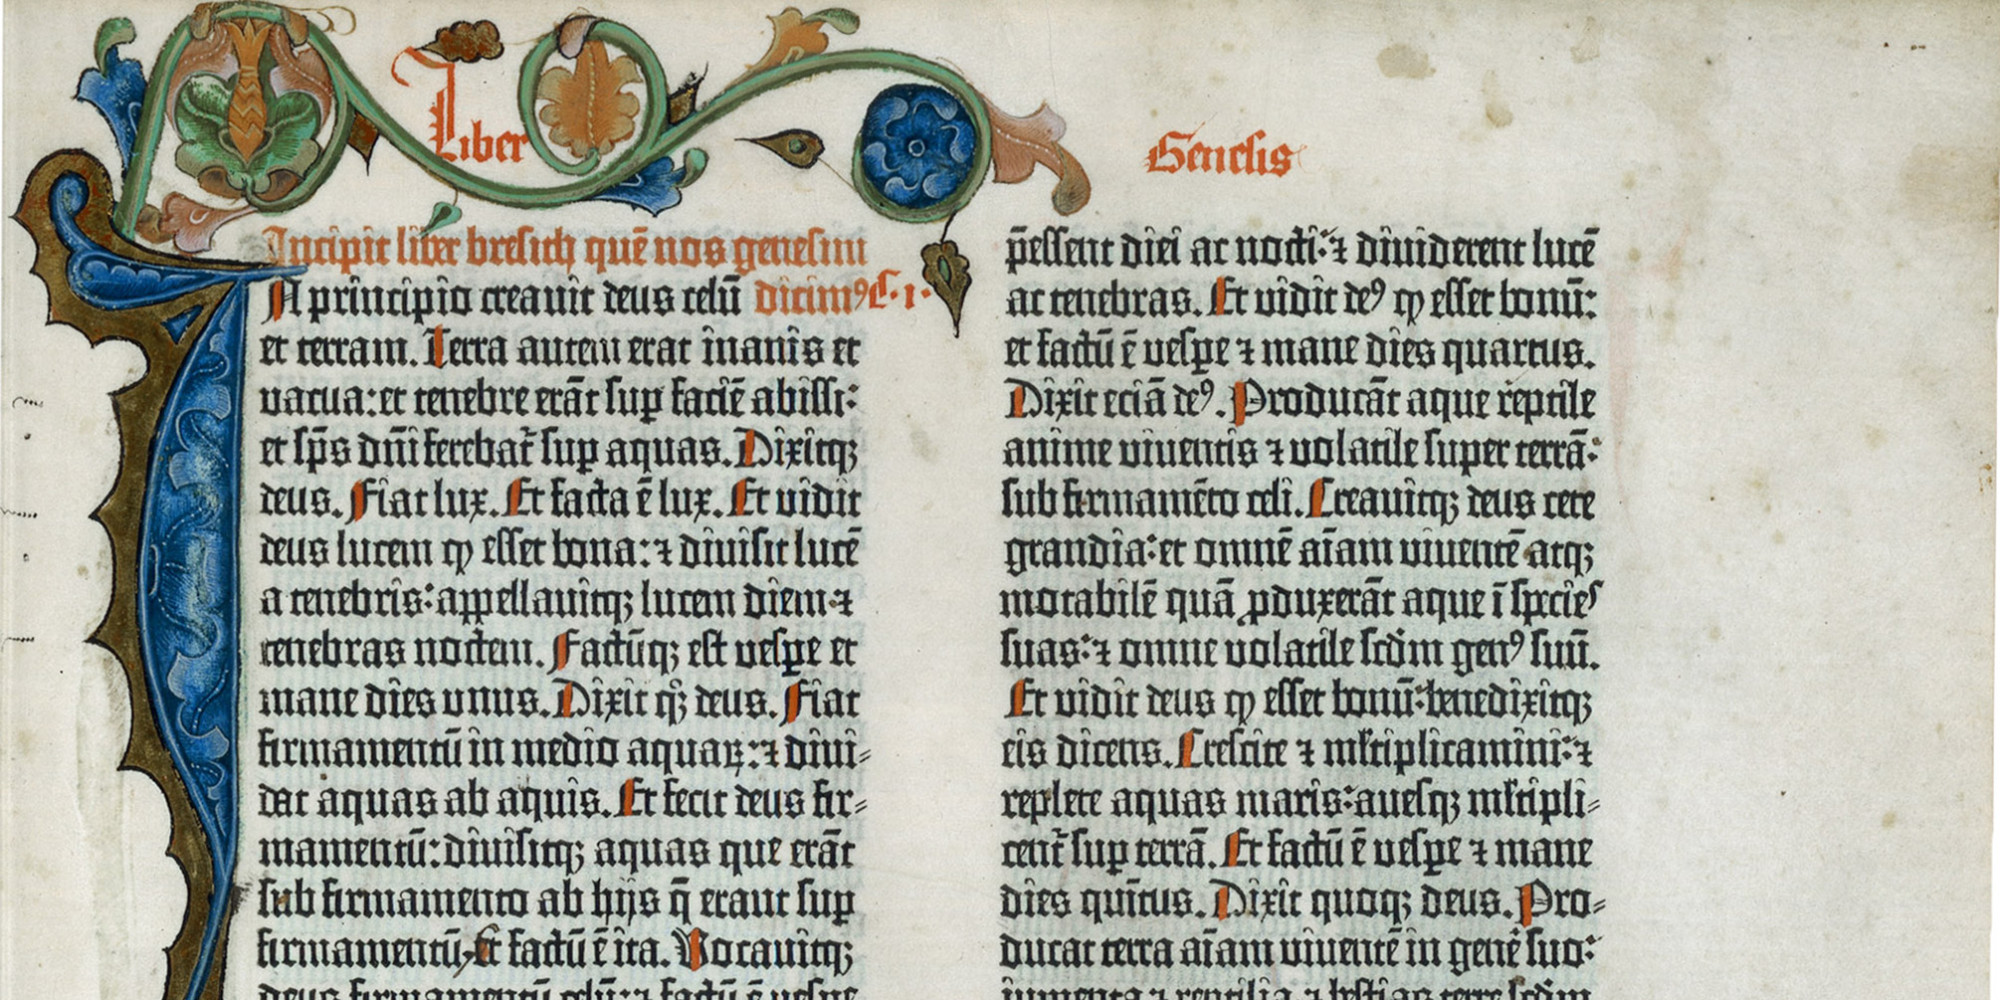 Liber
Genesis
Incipit liber bresith quē nos genesim
In principio creavit deus celū dicimꝰ C. 1.
et terram. Terra autem erat inanis et
vacua: et tenebre erāt sup faciē abissi:
et sp̄s dn̄i ferebat̄ sup aquas. Dixitqꝫ
deus. Fiat lux. Et facta ē lux. Et vidit
deus lucem ꝙ esset bona: ⁊ divisit lucē
a tenebris: appellavitqꝫ lucem diem ⁊
tenebras noctem. Factūqꝫ est vespe et
mane dies unus. Dixit qͦꝫ deus. Fiat
firmamentū in medio aquaꝝ: ⁊ divi-
dat aquas ab aquis. Et fecit deus fir-
mamentū: divisitqꝫ aquas que erāt
sub firmamento ab hijs q̄ erant sup
firmamentū. Et factū ē ita. Vocavitqꝫ
deus firmamentū celū: ⁊ factū ē vespe
p̄essent diei ac nocti: ⁊ dividerent lucē
ac tenebras. Et vidit deꝰ ꝙ esset bonū:
et factū ē vespe ⁊ mane dies quartus.
Dixit eciā deꝰ. Producāt aque reptile
anime viventis ⁊ volatile super terrā:
sub firmamēto celi. Creavitqꝫ deus cete
grandia: et omnē aīam viventē atqꝫ
motabilē quā ꝓduxerāt aque ī species
suas: ⁊ omne volatile scdm genꝰ suū.
Et vidit deus ꝙ esset bonū: benedixitqꝫ
eis dicens. Crescite ⁊ mltiplicamini: ⁊
replete aquas maris: avesqꝫ mltipli-
cent̄ sup terrā. Et factū ē vespe ⁊ mane
dies quītus. Dixit quoqꝫ deus. Pro-
ducat terra aīam viventē in genē suo:
iumenta ⁊ reptilia ⁊ bestias terre scdm